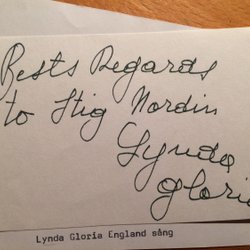 Bests Regards
to Stig Nordin
Lynda
Gloria
Lynda Gloria England sång